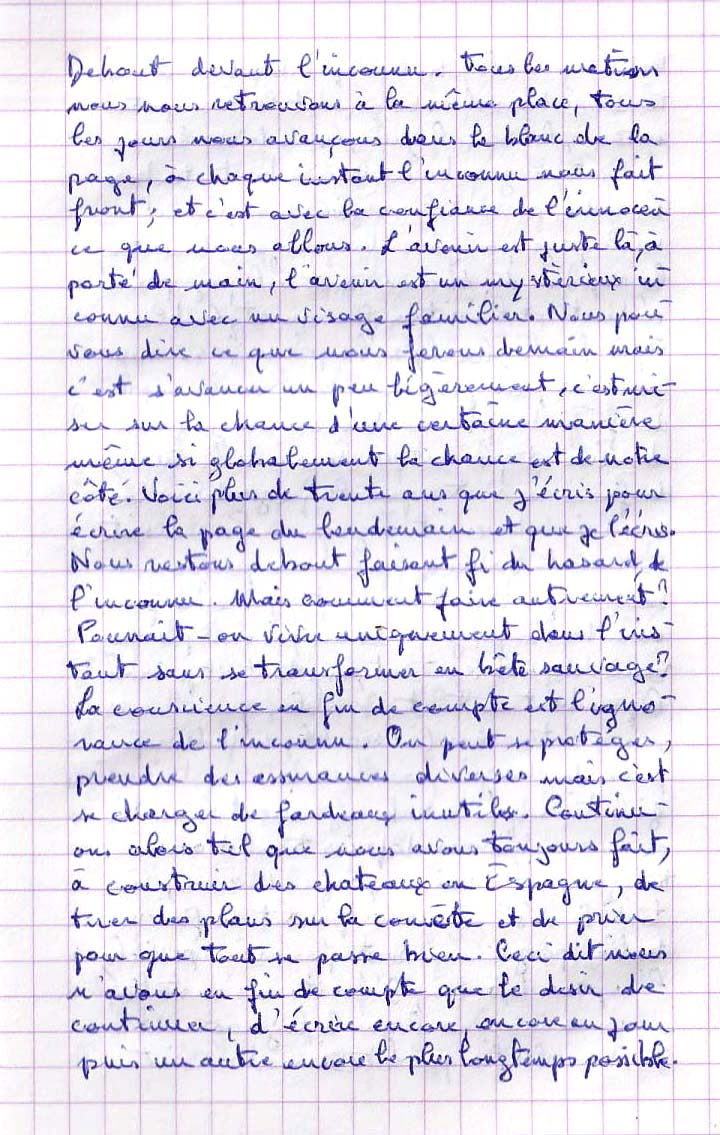 Debout devant l'inconnu. Tous les matins
nous nous retrouvons à la même place, tous
les jours nous avançons dans le blanc de la
page, à chaque instant l'inconnu nous fait
front, et c'est avec la confiance de l'innocen
ce que nous allons. L'avenir est juste là, à
porté de main, l'avenir est un mystèrieux in
connu avec un visage familier. Nous pou
vons dire ce que nous ferons demain mais
c'est s'avancer un peu légèrement, c'est mi-
ser sur la chance d'une certaine manière
même si globalement la chance est de notre
côté. Voici plus de trente ans que j'écris pour
écrire la page du lendemain et que je l'écris.
Nous restons debout faisant fi du hasard, de
l'inconnu. Mais comment faire autrement?
Pourrait-on vivre uniquement dans l'ins-
tant sans se transformer en bête sauvage?
La conscience en fin de compte est l'igno-
rance de l'inconnu. On peut se protéger,
prendre des assurances diverses mais c'est
se charger de fardeaux inutiles. Continu-
ons alors tel que nous avons toujours fait,
à construire des chateaux en Espagne, de
tirer des plans sur la comète et de prier
pour que tout se passe bien. Ceci dit nous
n'avons en fin de compte que le désir de
continuer, d'écrire encore, encore un jour
puis un autre encore le plus longtemps possible.